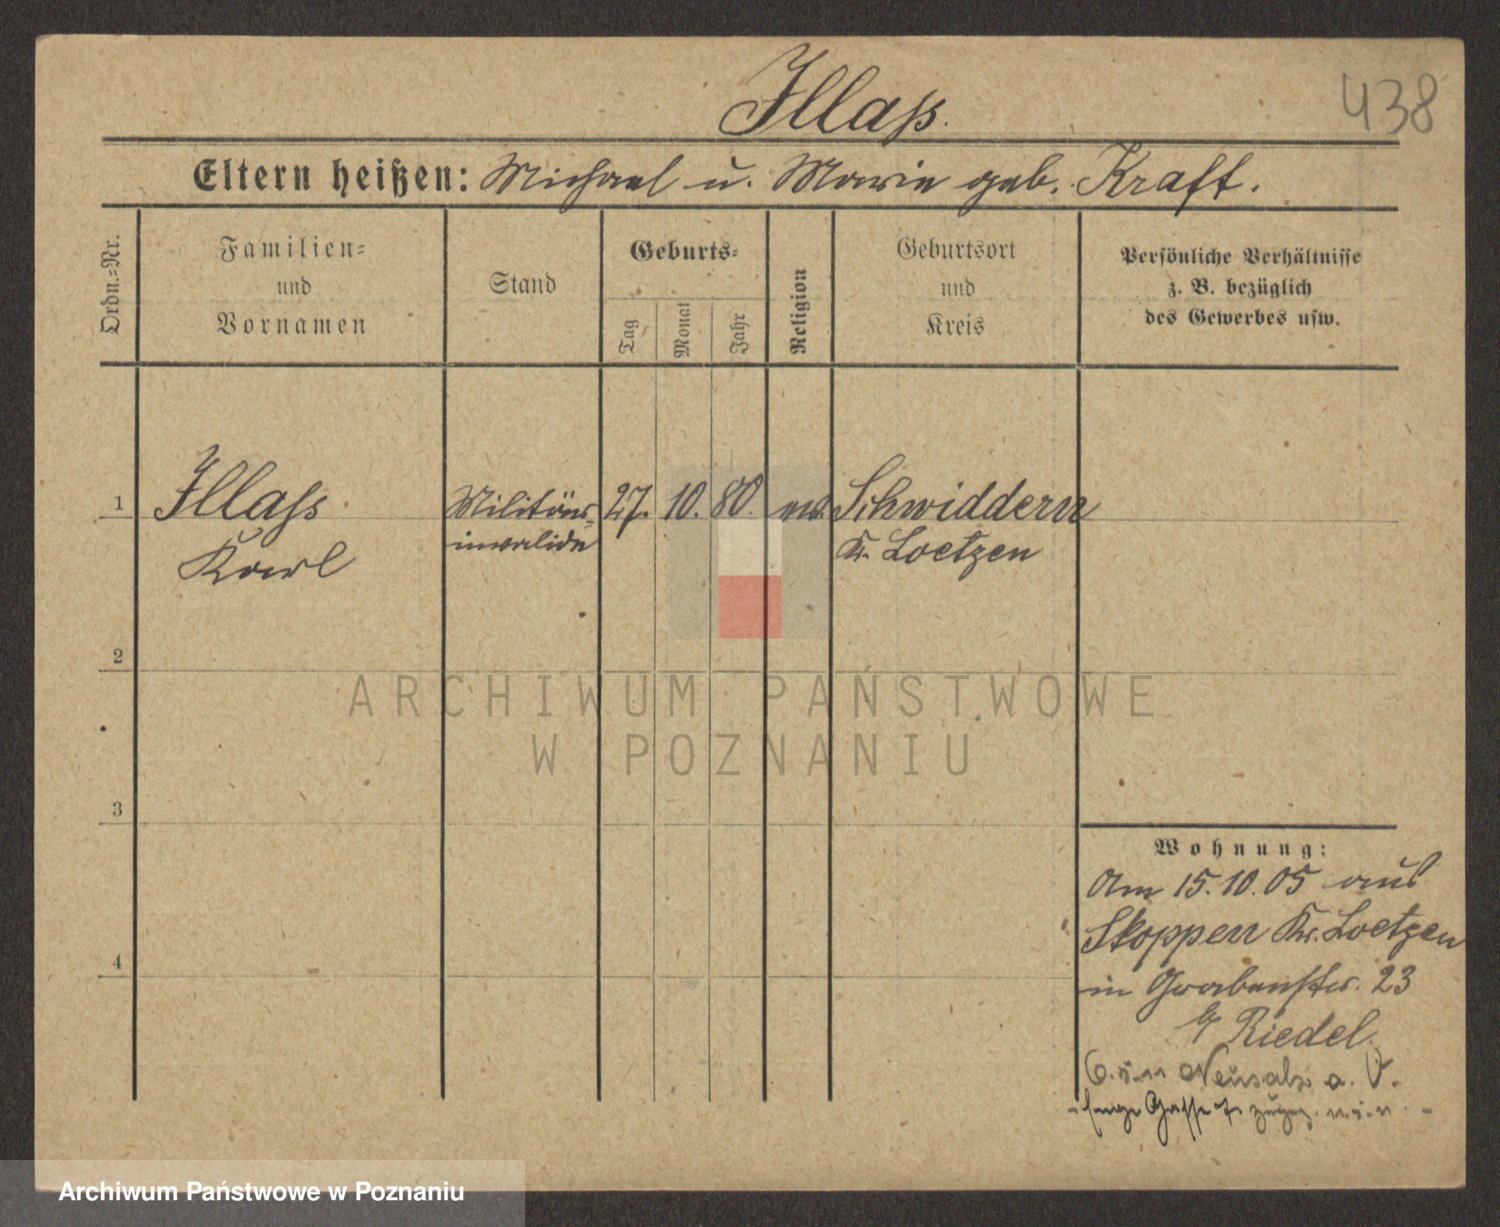 Illass.
438
Eltern heißen: Michael u. Marie geb. Kraft.
Ordn.=Nr.
Familien=
und
Vornamen
Stand
Geburts=
Tag
Monat
Jahr
Religion
Geburtsort
und
Kreis
Persönliche Verhältnisse
z. B. bezüglich
des Gewerbes usw.
1
Illass
Karl
Militär-
invalide
27. 10. 80.
ev.
Schwiddern
Kr. Loetzen
2
ARCHIWUM PAŃSTWOWE
W POZNANIU
3
4
Wohnung:
Am 15.10.05 aus
Skoppen Kr. Loetzen
in Grabenstr. 23
b/ Riedel.
Neusalz a. O.
Gasse 7.
Archiwum Państwowe w Poznaniu